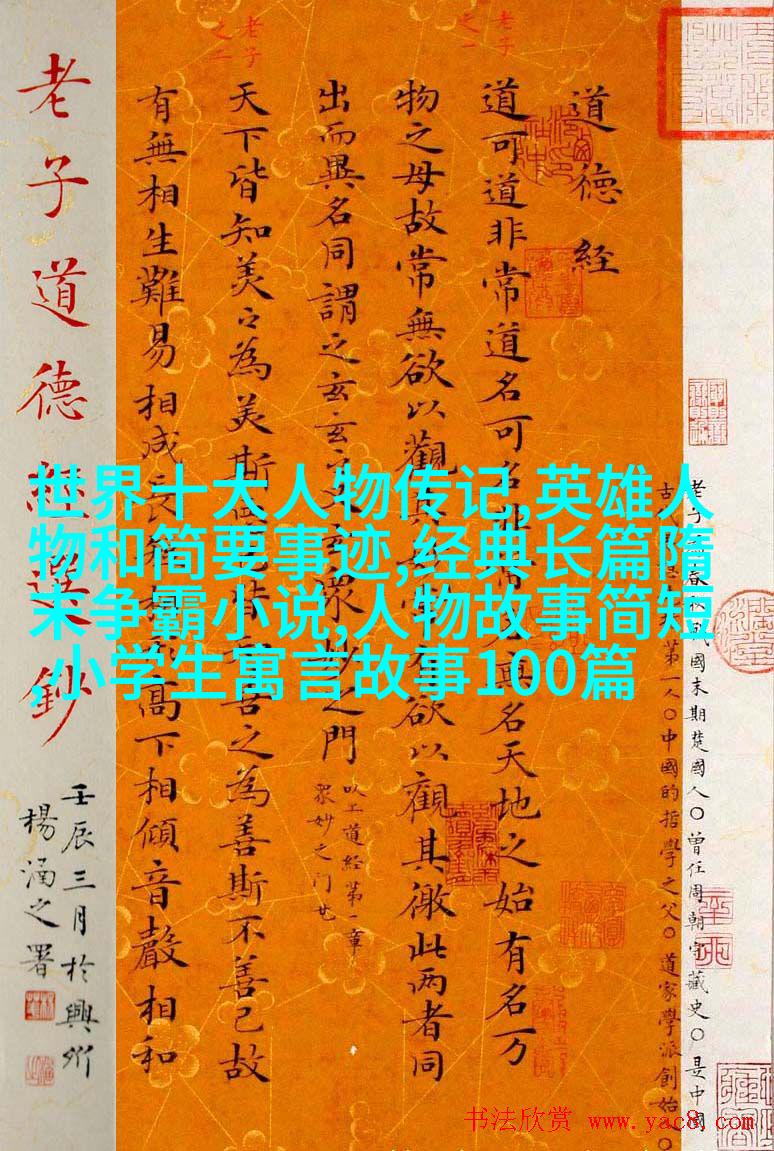 老子之一
老子之二
道德經
道可道非常道名可名非常名無名天地之始有名万
物之母故常無欲以觀其妙常有欲以觀其徼此两者同
出而異名同謂之玄玄之又玄眾妙之門
以上道經第一章
眾妙之门
天下皆知美々為美斯惡已皆知善之為善斯不善已故
有無相生難易相成長短相形高下相傾音聲相和
老子道德經選鈔
壬辰三月於興
楊涵之署
老子春秋戰國末期楚國人〇曾任周朝守藏史〇是中國
古代第一人〇中國的哲學之父〇道家學派創始〇
世界十大人物传记,英雄人
物和简要事迹,经典长篇隋
末争霸小说,人物故事简短
,小学生寓言故事100篇
书法欣赏 www.yac8.com